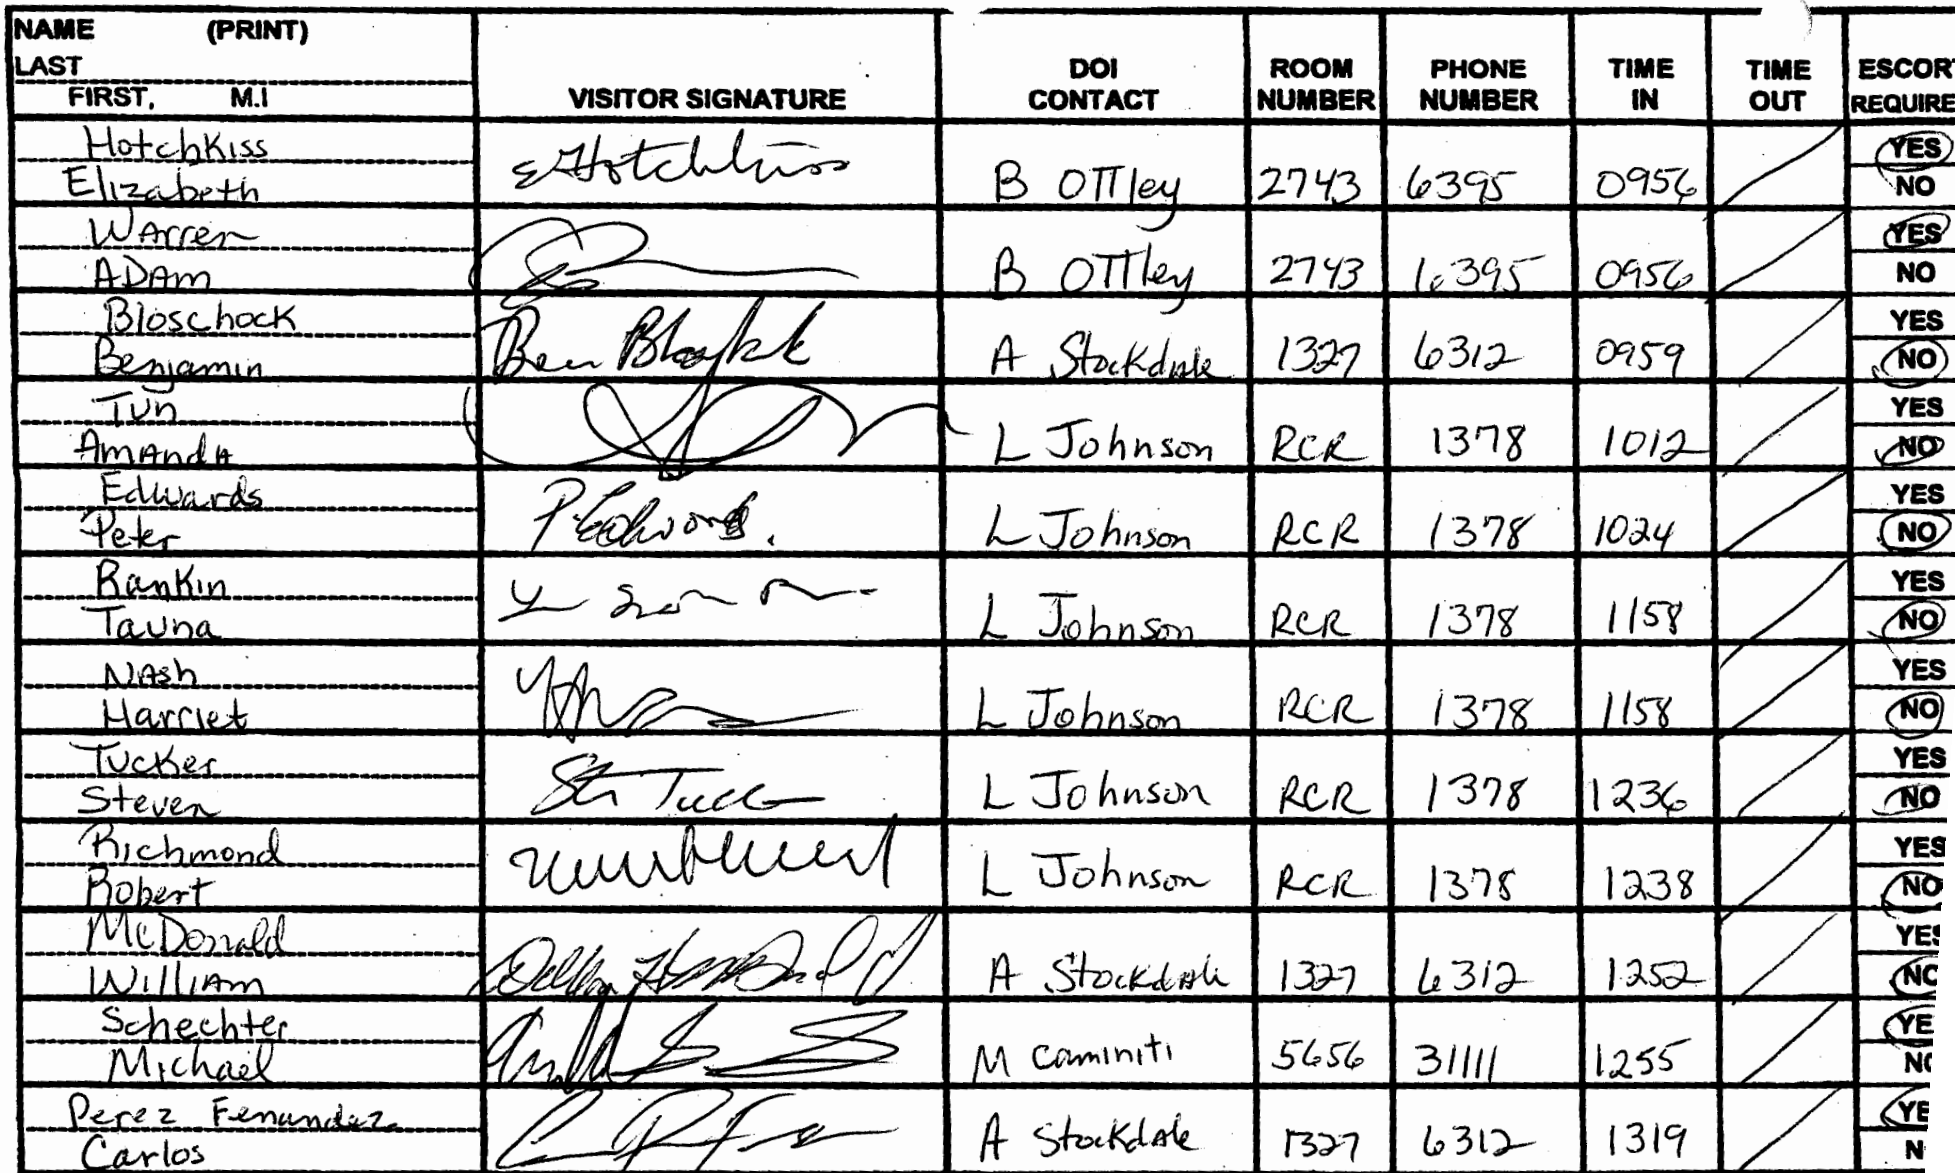 NAME (PRINT)
LAST
FIRST, M.I
VISITOR SIGNATURE
DOI CONTACT
ROOM NUMBER
PHONE NUMBER
TIME IN
TIME OUT
ESCORT REQUIRE
Hotchkiss
Elizabeth
EHotchkiss B Ottley 2743 6395 0956 YES NO
Warren
ADAM
B Ottley 2743 6395 0956 YES NO
Bloschock
Benjamin
Ben A Stockdale 1327 6312 0959 YES NO
Tun
AmAndA
L Johnson RCR 1378 1012 YES NO
Edwards
Peter
P. Edwards. L Johnson RCR 1378 1024 YES NO
Rankin
Tauna
L Johnson RCR 1378 1158 YES NO
NAsh
Harriet
L Johnson RCR 1378 1158 YES NO
Tucker
Steven
L Johnson RCR 1378 1236 YES NO
Richmond
Robert
L Johnson RCR 1378 1238 YES NO
McDonald
William
A Stockdale 1327 6312 1252 YES NO
Schechter
Michael
M Caminiti 5656 31111 1255 YE NO
Perez Fenandez
Carlos
A Stockdale 1327 6312 1319 YE N